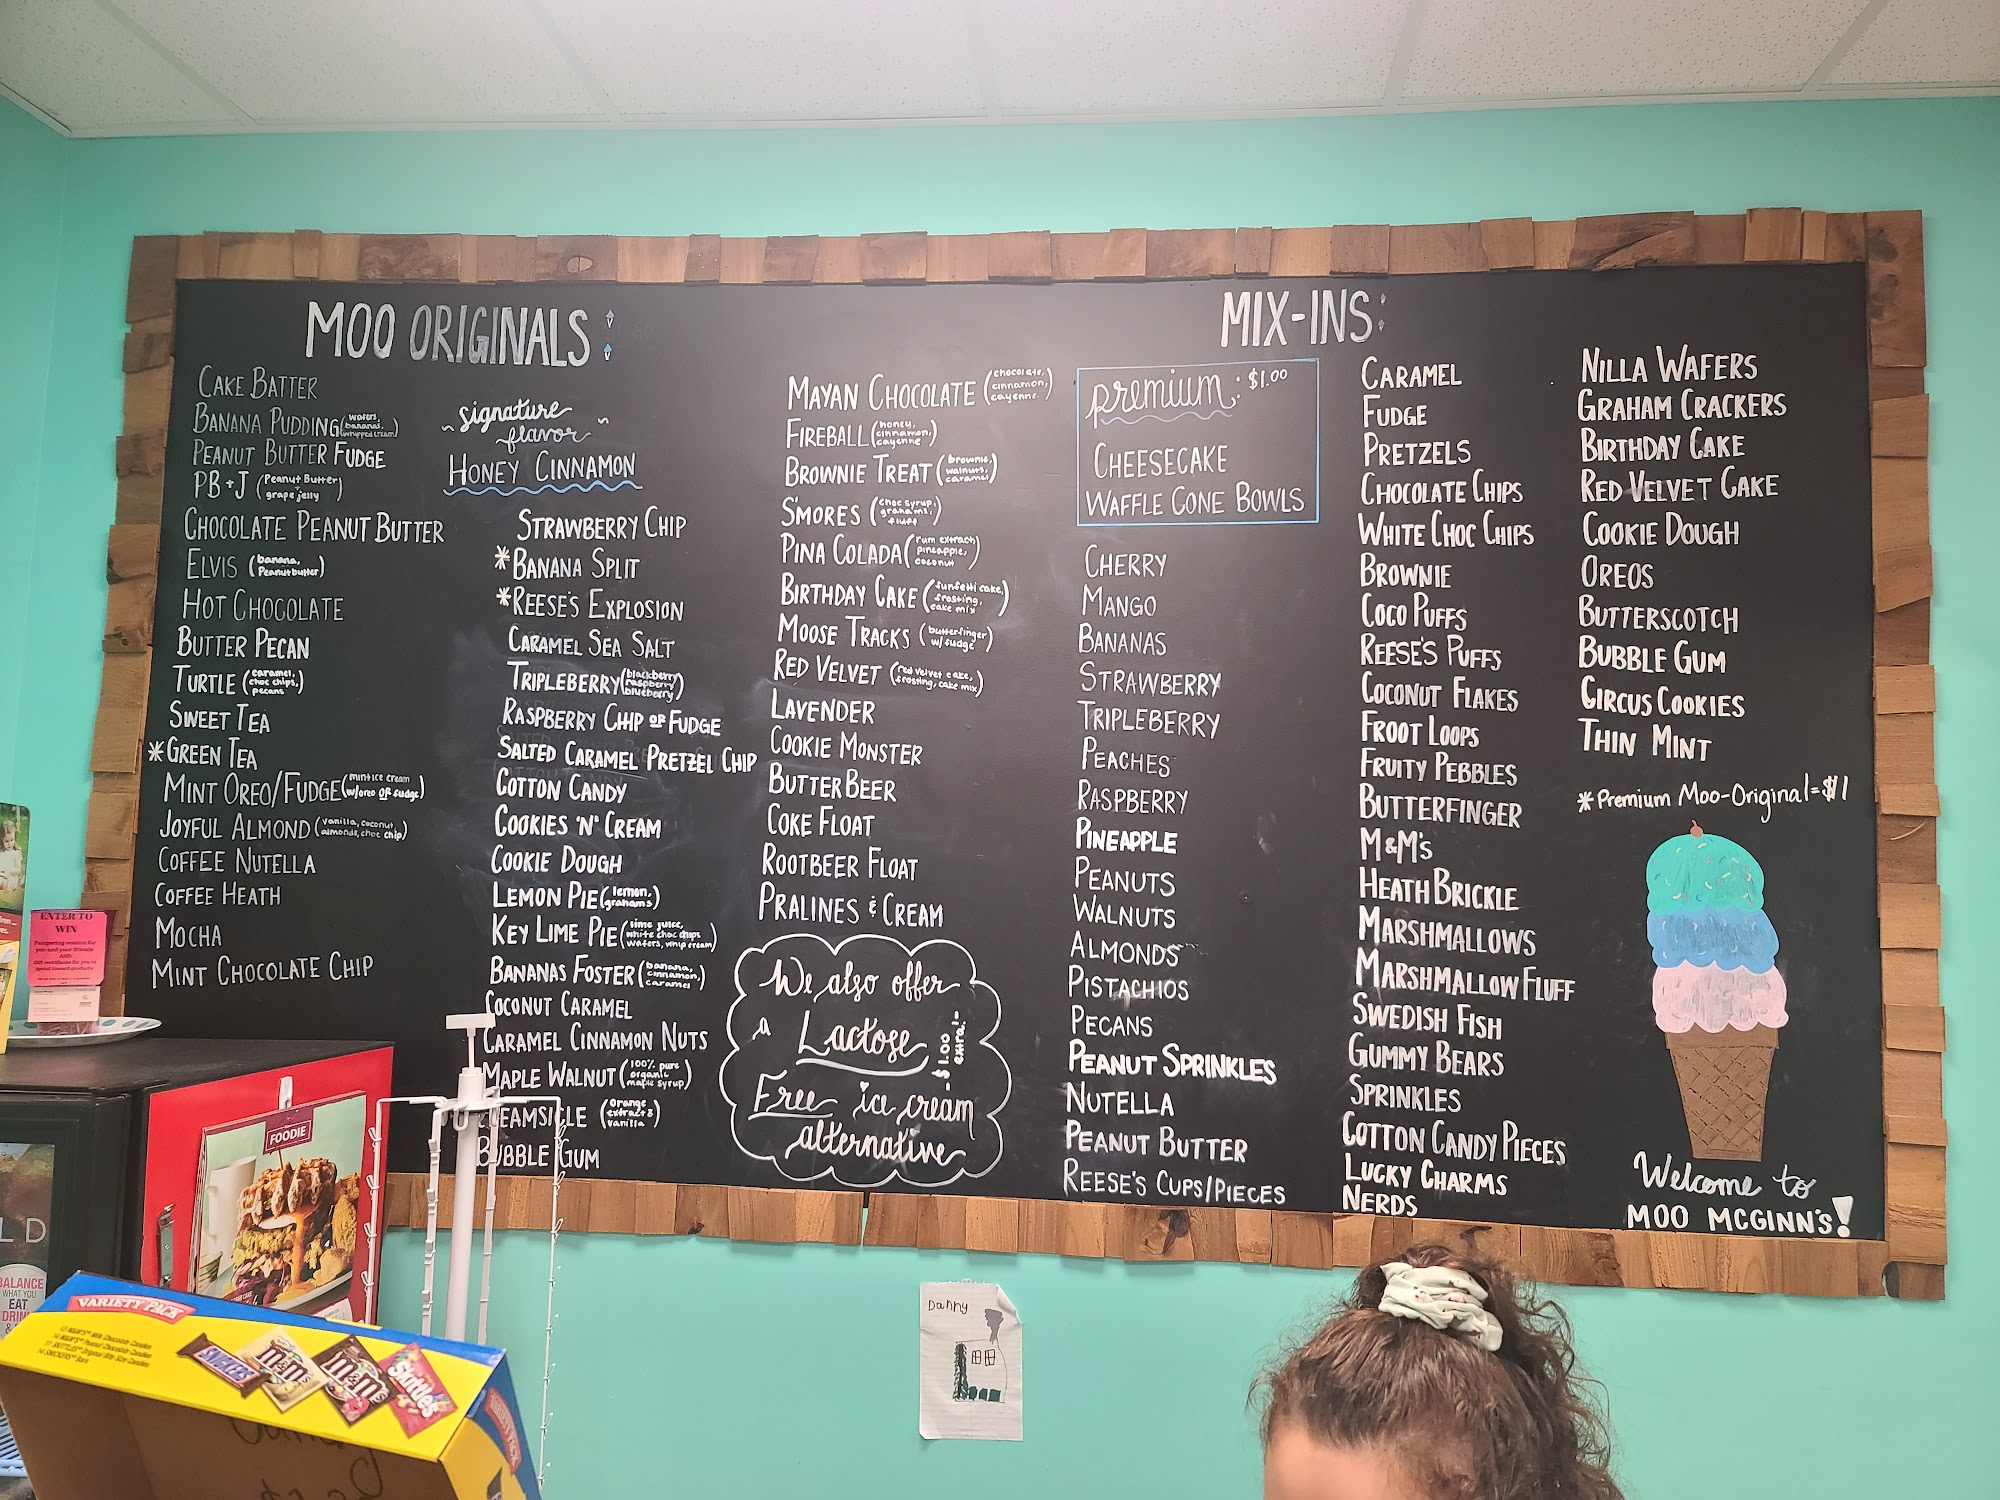 MOO ORIGINALS:
CAKE BATTER
BANANA PUDDING (wafers, bananas, whipped cream)
PEANUT BUTTER FUDGE
PB+J (Peanut Butter grape jelly)
CHOCOLATE PEANUT BUTTER
ELVIS (banana, Peanut butter)
HOT CHOCOLATE
BUTTER PECAN
TURTLE (caramel, choc chips, pecans)
SWEET TEA
*GREEN TEA
MINT OREO/FUDGE (mint ice cream w/oreo OR fudge)
JOYFUL ALMOND (vanilla, coconut, almonds, choc chip)
COFFEE NUTELLA
COFFEE HEATH
MOCHA
MINT CHOCOLATE CHIP
~signature flavor~
HONEY CINNAMON
STRAWBERRY CHIP
*BANANA SPLIT
*REESE'S EXPLOSION
CARAMEL SEA SALT
TRIPLEBERRY (blackberry raspberry blueberry)
RASPBERRY CHIP OR FUDGE
SALTED CARAMEL PRETZEL CHIP
COTTON CANDY
COOKIES 'N' CREAM
COOKIE DOUGH
LEMON PIE (lemon, grahams)
KEY LIME PIE (lime juice, white choc chips wafers, whip cream)
BANANAS FOSTER (banana, cinnamon, caramel)
COCONUT CARAMEL
CARAMEL CINNAMON NUTS
MAPLE WALNUT (100% pure organic maple syrup)
EAMSICLE (orange extract & vanilla)
BUBBLE GUM
MAYAN CHOCOLATE (chocolate, cinnamon, cayenne)
FIREBALL (honey, cinnamon, cayenne)
BROWNIE TREAT (brownie, walnuts, caramel)
S'MORES (choc syrup, graham, fluff)
PINA COLADA (rum extract, pineapple, coconut)
BIRTHDAY CAKE (funfetti cake, frosting, cake mix)
MOOSE TRACKS (butterfinger w/ fudge)
RED VELVET (red velvet cake, frosting, cake mix)
LAVENDER
COOKIE MONSTER
BUTTER BEER
COKE FLOAT
ROOTBEER FLOAT
PRALINES & CREAM
We also offer
a Lactose
Free ice cream
alternative
-$1.00 extra!-
MIX-INS:
premium: $1.00
CHEESECAKE
WAFFLE CONE BOWLS
CHERRY
MANGO
BANANAS
STRAWBERRY
TRIPLEBERRY
PEACHES
RASPBERRY
PINEAPPLE
PEANUTS
WALNUTS
ALMONDS
PISTACHIOS
PECANS
PEANUT SPRINKLES
NUTELLA
PEANUT BUTTER
REESE'S CUPS/PIECES
CARAMEL
FUDGE
PRETZELS
CHOCOLATE CHIPS
WHITE CHOC CHIPS
BROWNIE
COCO PUFFS
REESE'S PUFFS
COCONUT FLAKES
FROOT LOOPS
FRUITY PEBBLES
BUTTERFINGER
M&M's
HEATH BRICKLE
MARSHMALLOWS
MARSHMALLOW FLUFF
SWEDISH FISH
GUMMY BEARS
SPRINKLES
COTTON CANDY PIECES
LUCKY CHARMS
NERDS
NILLA WAFERS
GRAHAM CRACKERS
BIRTHDAY CAKE
RED VELVET CAKE
COOKIE DOUGH
OREOS
BUTTERSCOTCH
BUBBLE GUM
CIRCUS COOKIES
THIN MINT
*Premium Moo-Original=$1
Welcome to
MOO MCGINN'S!
ENTER TO
WIN
Pampering session for
you and your friends
AND
Gift certificate for you to
spend toward products
FOODIE
LD
BALANCE
WHAT YOU
EAT
DRIN
VARIETY PACK
SNICKERS
m&m's
m&m's
Skittles
VARIETY PACK
Danny